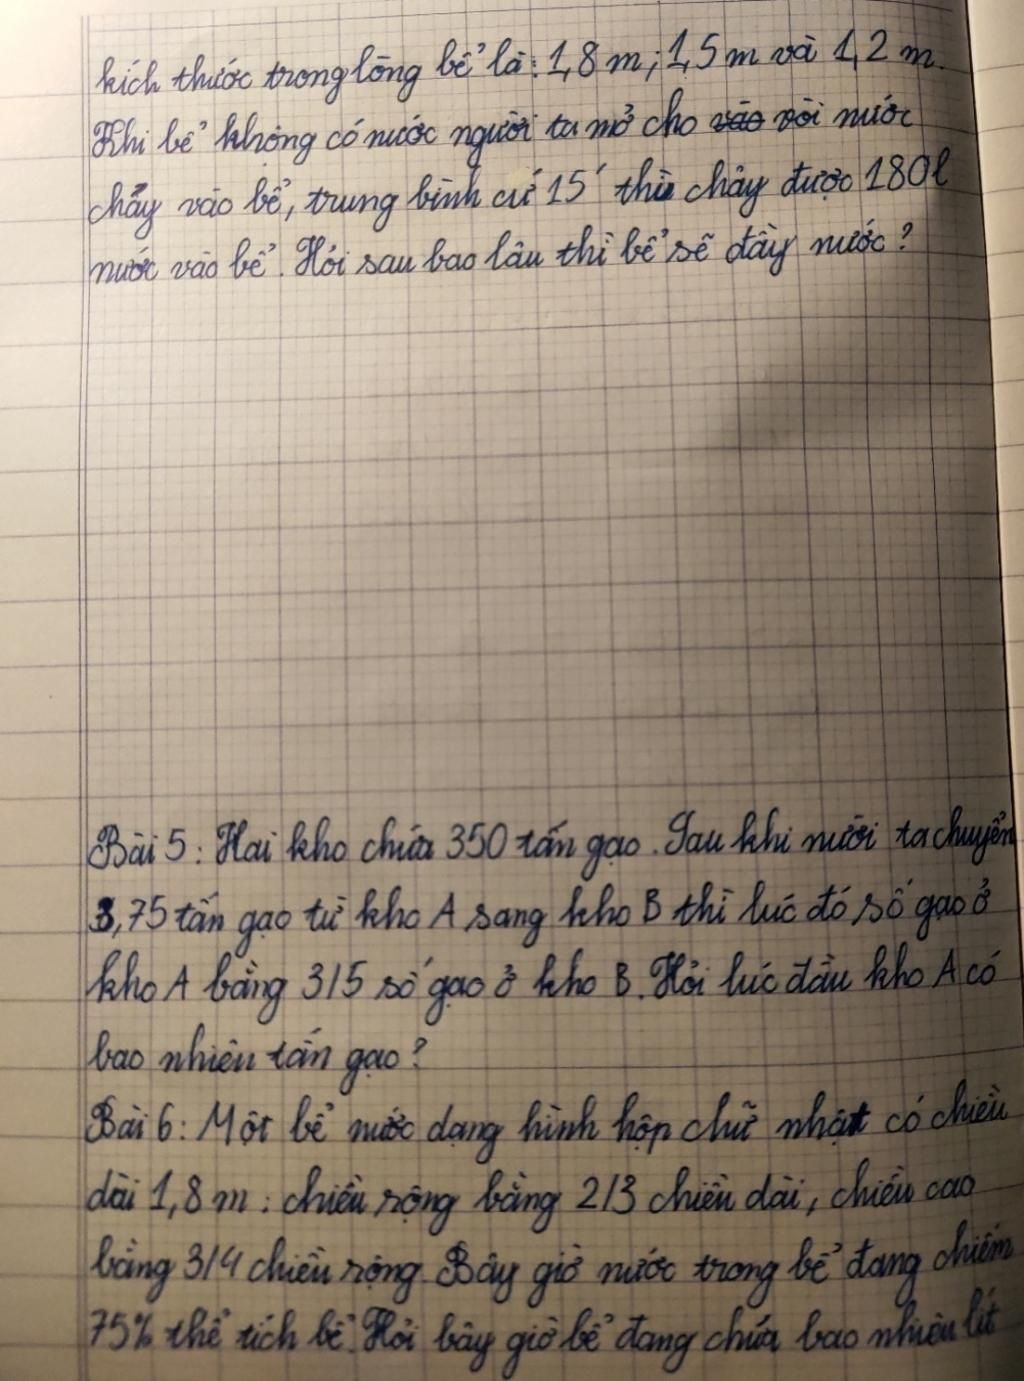 kích thước trong lòng bể là: 1,8 m; 1,5 m và 1,2 m.
Khi bể không có nước người ta mở cho vào vòi nước
chảy vào bể, trung bình cứ 15' thì chảy được 180l
nước vào bể. Hỏi sau bao lâu thì bể sẽ đầy nước?
Bài 5: Hai kho chứa 350 tấn gạo. Sau khi người ta chuyển
3,75 tấn gạo từ kho A sang kho B thì lúc đó số gạo ở
kho A bằng 3/5 số gạo ở kho B. Hỏi lúc đầu kho A có
bao nhiêu tấn gạo?
Bài 6: Một bể nước dạng hình hộp chữ nhật có chiều
dài 1,8 m; chiều rộng bằng 2/3 chiều dài, chiều cao
bằng 3/4 chiều rộng. Bây giờ nước trong bể đang chiếm
75% thể tích bể. Hỏi bây giờ bể đang chứa bao nhiêu lít